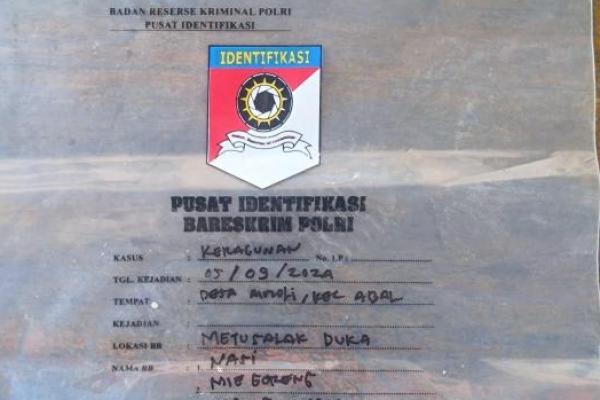 BADAN RESERSE KRIMINAL POLRI
PUSAT IDENTIFIKASI
IDENTIFIKASI
PUSAT IDENTIFIKASI
BARESKRIM POLRI
KASUS : KERACUNAN No. LP :
TGL. KEJADIAN : 05/09/2024
TEMPAT : DESA, KEC ABAL
KEJADIAN :
LOKASI BB : METUSALAK DUKA
NAMA BB : 1. NASI
2. MIE GORENG